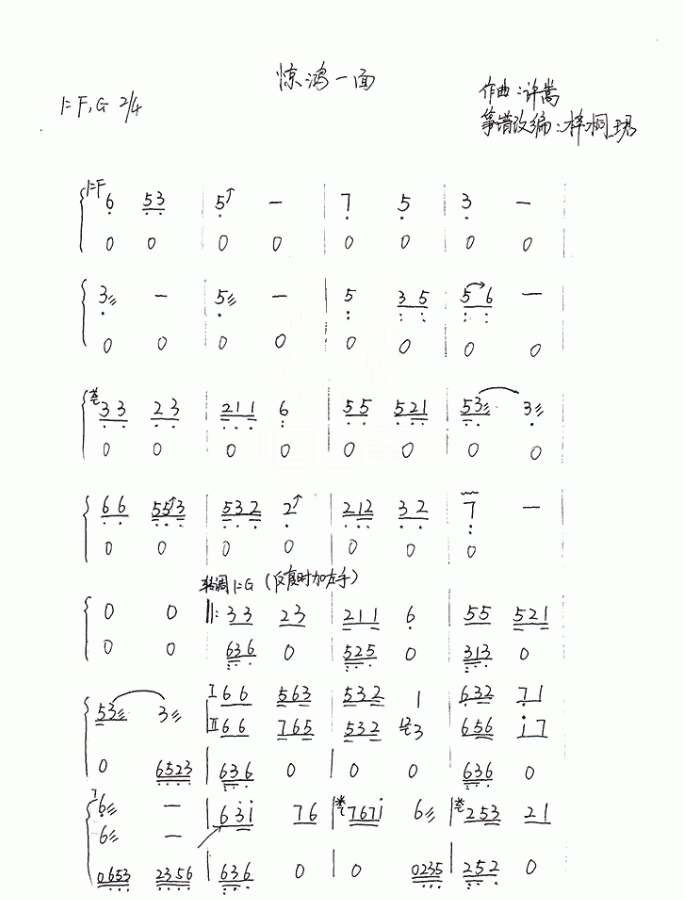 惊鸿一面
1=F,G 2/4
作曲:许嵩
筝谱改编:梓桐珺
1=F
6 53 5↑ — 7 5 3 —
0 0 0 0 0 0 0 0
3 — 5 — 5 35 56 —
0 0 0 0 0 0 0 0
33 23 211 6 55 521 53 3
0 0 0 0 0 0 0 0
66 55↑3 532 2↑ 212 32 7 —
0 0 0 0 0 0 0
转调 1=G (反复时加左手)
0 0 ‖: 33 23 211 6 55 521
0 0 636 0 525 0 313 0
53 3 I 66 563 532 1 632 71
II 66 765 532 3 656 i7
0 6523 636 0 0 0 636 0
6 — 63i 76 767i 6 253 21
6 —
0653 2356 636 0 0 0235 252 0